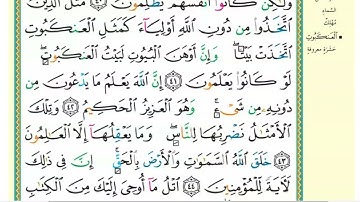 وَلَٰكِن كَانُوٓا۟ أَنفُسَهُمْ يَظْلِمُونَ ٤٠ مَثَلُ ٱلَّذِينَ
ٱتَّخَذُوا۟ مِن دُونِ ٱللَّهِ أَوْلِيَآءَ كَمَثَلِ ٱلْعَنكَبُوتِ
ٱتَّخَذَتْ بَيْتًا ۖ وَإِنَّ أَوْهَنَ ٱلْبُيُوتِ لَبَيْتُ ٱلْعَنكَبُوتِ ۖ
لَوْ كَانُوا۟ يَعْلَمُونَ ٤١ إِنَّ ٱللَّهَ يَعْلَمُ مَا يَدْعُونَ مِن
دُونِهِۦ مِن شَىْءٍ ۚ وَهُوَ ٱلْعَزِيزُ ٱلْحَكِيمُ ٤٢ وَتِلْكَ
ٱلْأَمْثَٰلُ نَضْرِبُهَا لِلنَّاسِ ۖ وَمَا يَعْقِلُهَآ إِلَّا ٱلْعَٰلِمُونَ
٤٣ خَلَقَ ٱللَّهُ ٱلسَّمَٰوَٰتِ وَٱلْأَرْضَ بِٱلْحَقِّ ۚ إِنَّ فِى ذَٰلِكَ
لَءَايَةً لِّلْمُؤْمِنِينَ ٤٤ ٱتْلُ مَآ أُوحِىَ إِلَيْكَ مِنَ ٱلْكِتَٰبِ
السماء
مُهلك
العنكبوت
حشرة معروفة